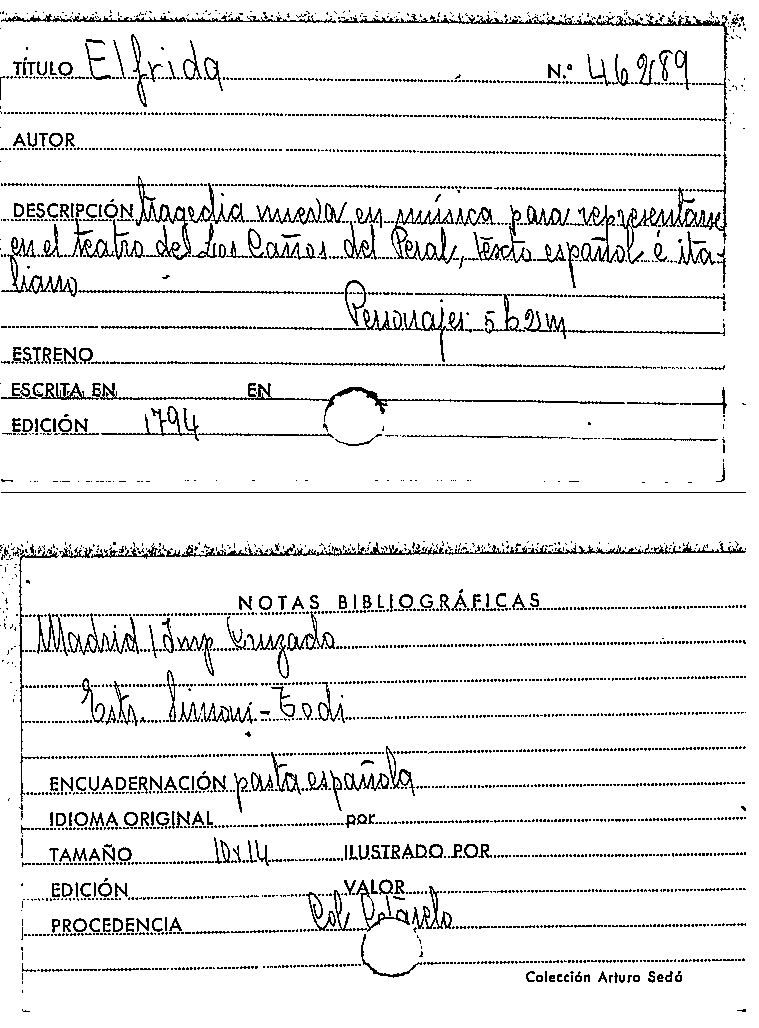 TÍTULO Elfrida N.º 46289
AUTOR
DESCRIPCIÓN tragedia nueva en música para representarse
en el teatro del Los Caños del Peral, texto español é ita-
liano
Personajes 5 h 2 m
ESTRENO
ESCRITA EN EN
EDICIÓN 1794
NOTAS BIBLIOGRÁFICAS
Madrid / Imp Cruzado
Estr. Simoni-Todi
ENCUADERNACIÓN pasta española
IDIOMA ORIGINAL por
TAMAÑO 10x14 ILUSTRADO POR
EDICIÓN VALOR
PROCEDENCIA Col Cotarelo
Colección Arturo Sedó